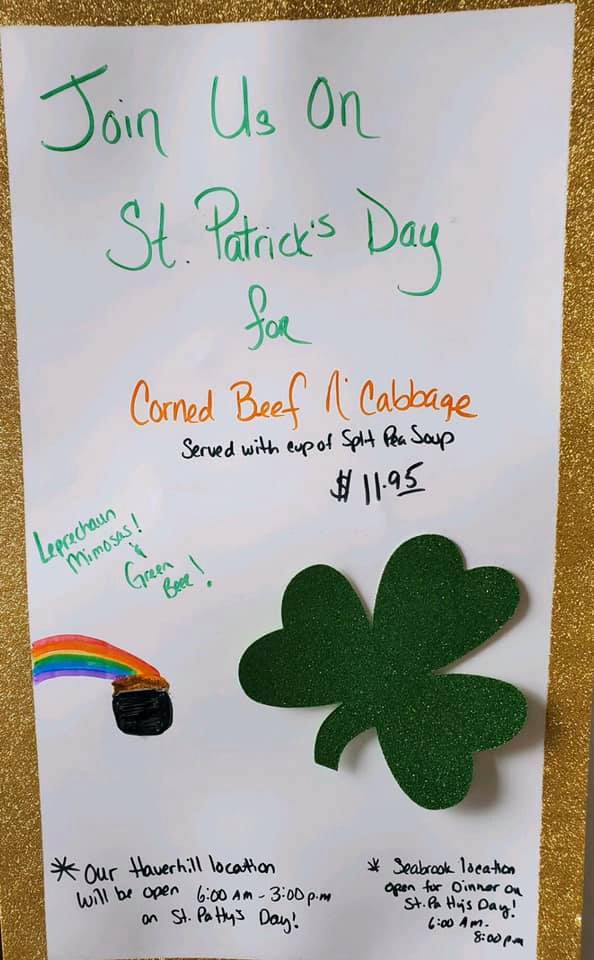 Join Us On
St. Patrick's Day
for
Corned Beef N' Cabbage
Served with cup of Split Pea Soup
$ 11.95
Leprechaun
Mimosas!
&
Green
Beer!
* Our Haverhill location
will be open 6:00 AM - 3:00 p.m
on St. Patty's Day!
* Seabrook location
open for Dinner on
St. Patty's Day!
6:00 AM -
8:00 pm